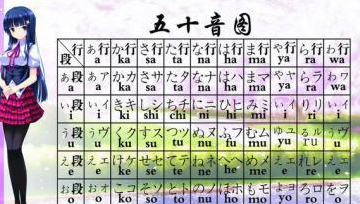 五十音图
行 あ行 か行 さ行 た行 な行 は行 ま行 や行 ら行 わ行
段 a ka sa ta na ha ma ya ra wa
あ段 あア かカ さサ たタ なナ はハ まマ やヤ らラ わワ
a a ka sa ta na ha ma ya ra wa
い段 いイ きキ しシ ちチ にニ ひヒ みミ いイ りリ いイ
i i ki shi chi ni hi mi i ri i
う段 くク すス つツ ぬヌ ふフ むム ゆユ るル
u u ku su tsu nu fu mu yu ru u
え段 えエ けケ せセ てテ ねネ へヘ めメ えエ れレ えエ
e e ke se te ne he me e re e
お段 おオ こコ そソ とト のノ ほホ もモ よヨ ろロ をヲ
o o ko so to no ho mo yo ro o